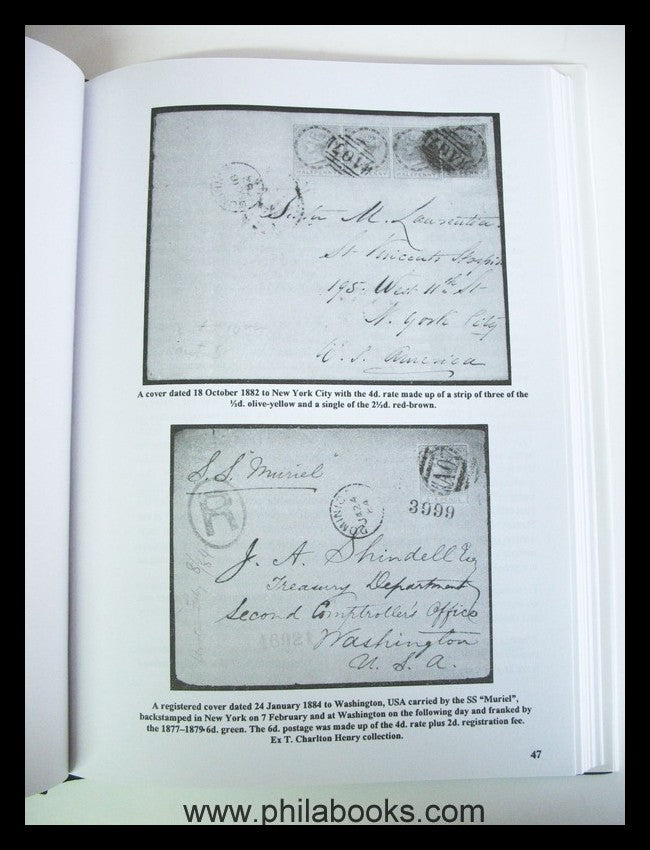 HALFPENNY
A07
A07
Sister M. Laurentia
St Vincents Hospital
195. West 11th St
N. York City
U. S. America
A cover dated 18 October 1882 to New York City with the 4d. rate made up of a strip of three of the
½d. olive-yellow and a single of the 2½d. red-brown.
S.S. "Muriel"
R
A07
DOMINICA
JA 24
84
3999
J. A. Shindell Esq
Treasury Department
Second Comptroller's Office
Washington
U. S. A.
A registered cover dated 24 January 1884 to Washington, USA carried by the SS “Muriel”,
backstamped in New York on 7 February and at Washington on the following day and franked by
the 1877–1879 6d. green. The 6d. postage was made up of the 4d. rate plus 2d. registration fee.
Ex T. Charlton Henry collection.
47
www.philabooks.com